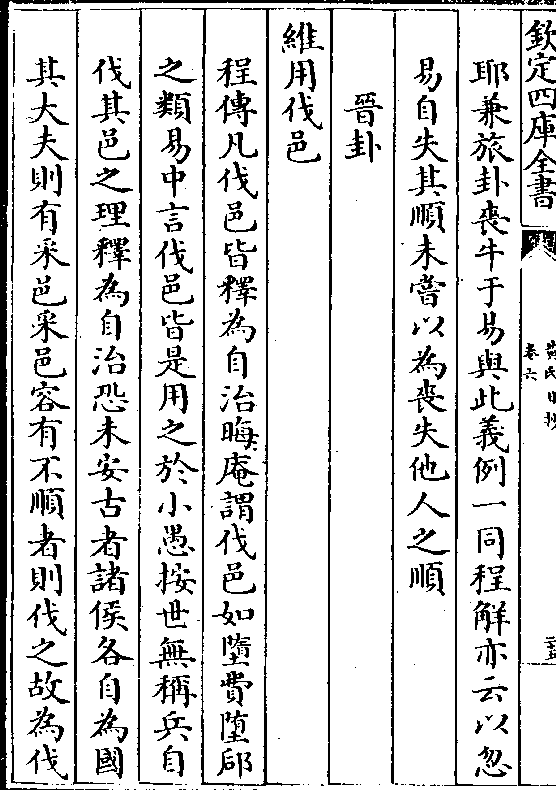 欽定四庫全書
黃氏日抄
卷六
耶兼旅卦喪牛于易與此義例一同程解亦云以忽
易自失其順未嘗以為喪失他人之順
晉卦
維用伐邑
程傳凡伐邑皆釋為自治晦庵謂伐邑如墮費墮郈
之類易中言伐邑皆是用之於小愚按世無稱兵自
伐其邑之理釋為自治恐未安古者諸侯各自為國
其大夫則有采邑采邑容有不順者則伐之故為伐